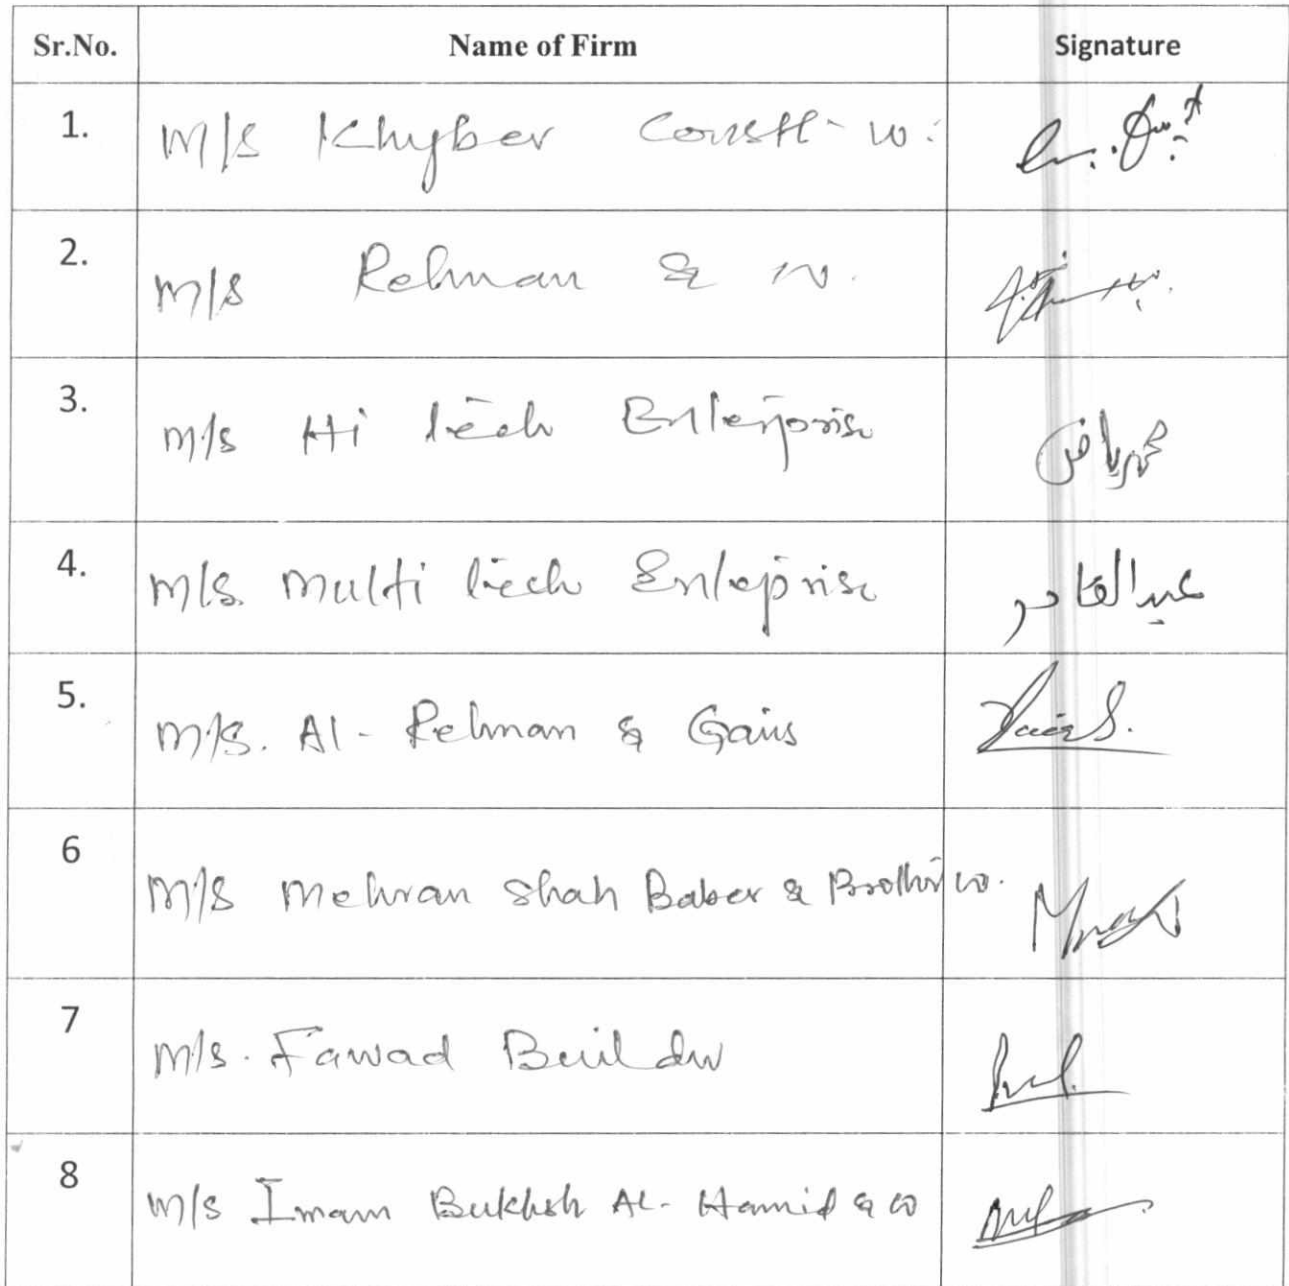 Sr.No. Name of Firm Signature
1. M/s Khyber Constt- co:
2. M/s Rehman & co.
3. M/s Hi tech Enterprise محمد ریاض
4. M/s. Multi tech Enteprise عبدالقادر
5. M/s. Al - Rehman & Gains
6 M/s Mehran Shah Baber & Brother co.
7 M/s. Fawad Builder
8 M/s Imam Bukhsh AL- Hamid & co